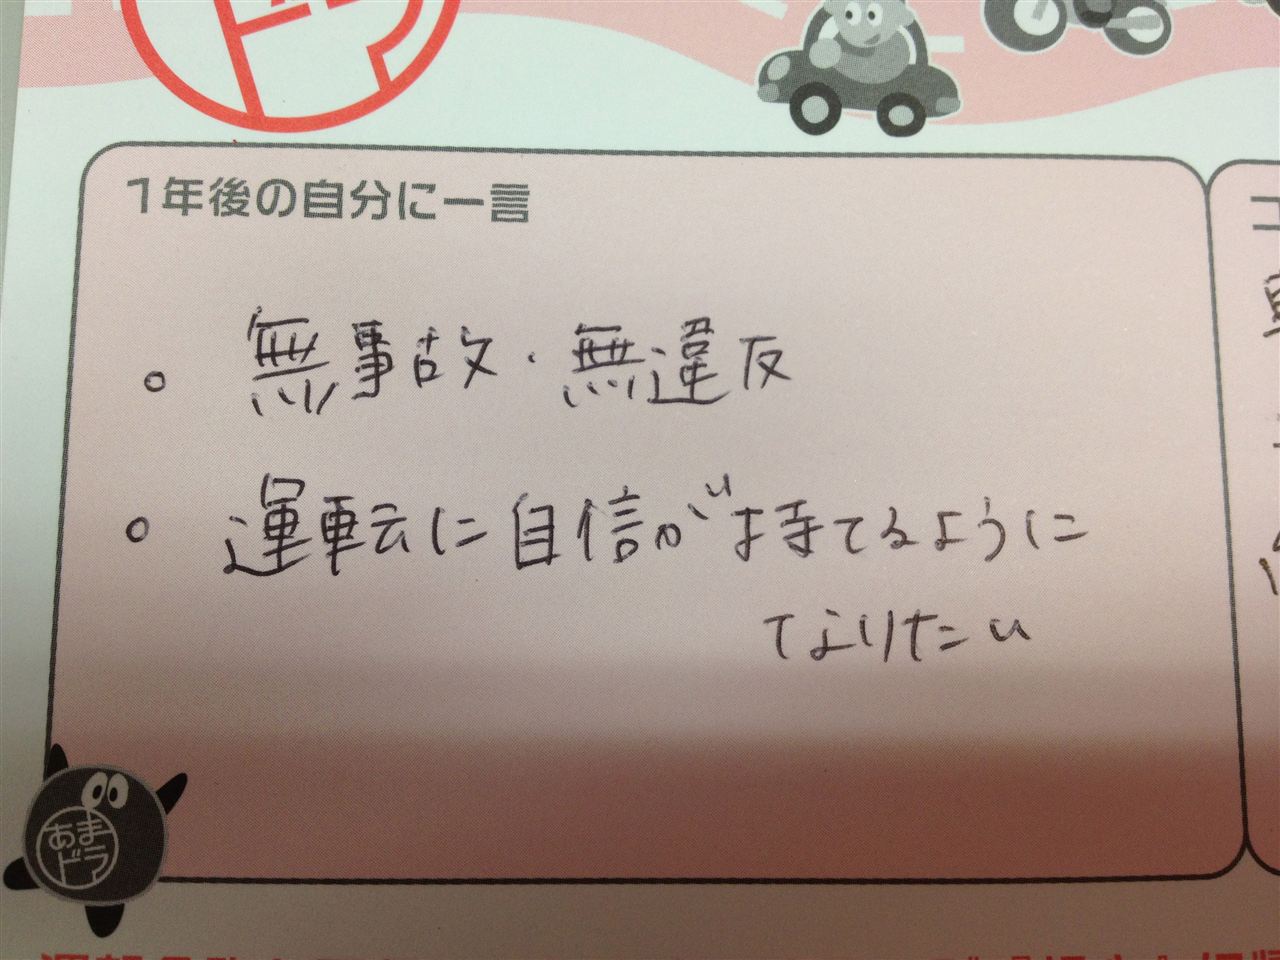 1年後の自分に一言
。無事故・無違反
。運転に自信が持てるように
なりたい
あま
ドラ